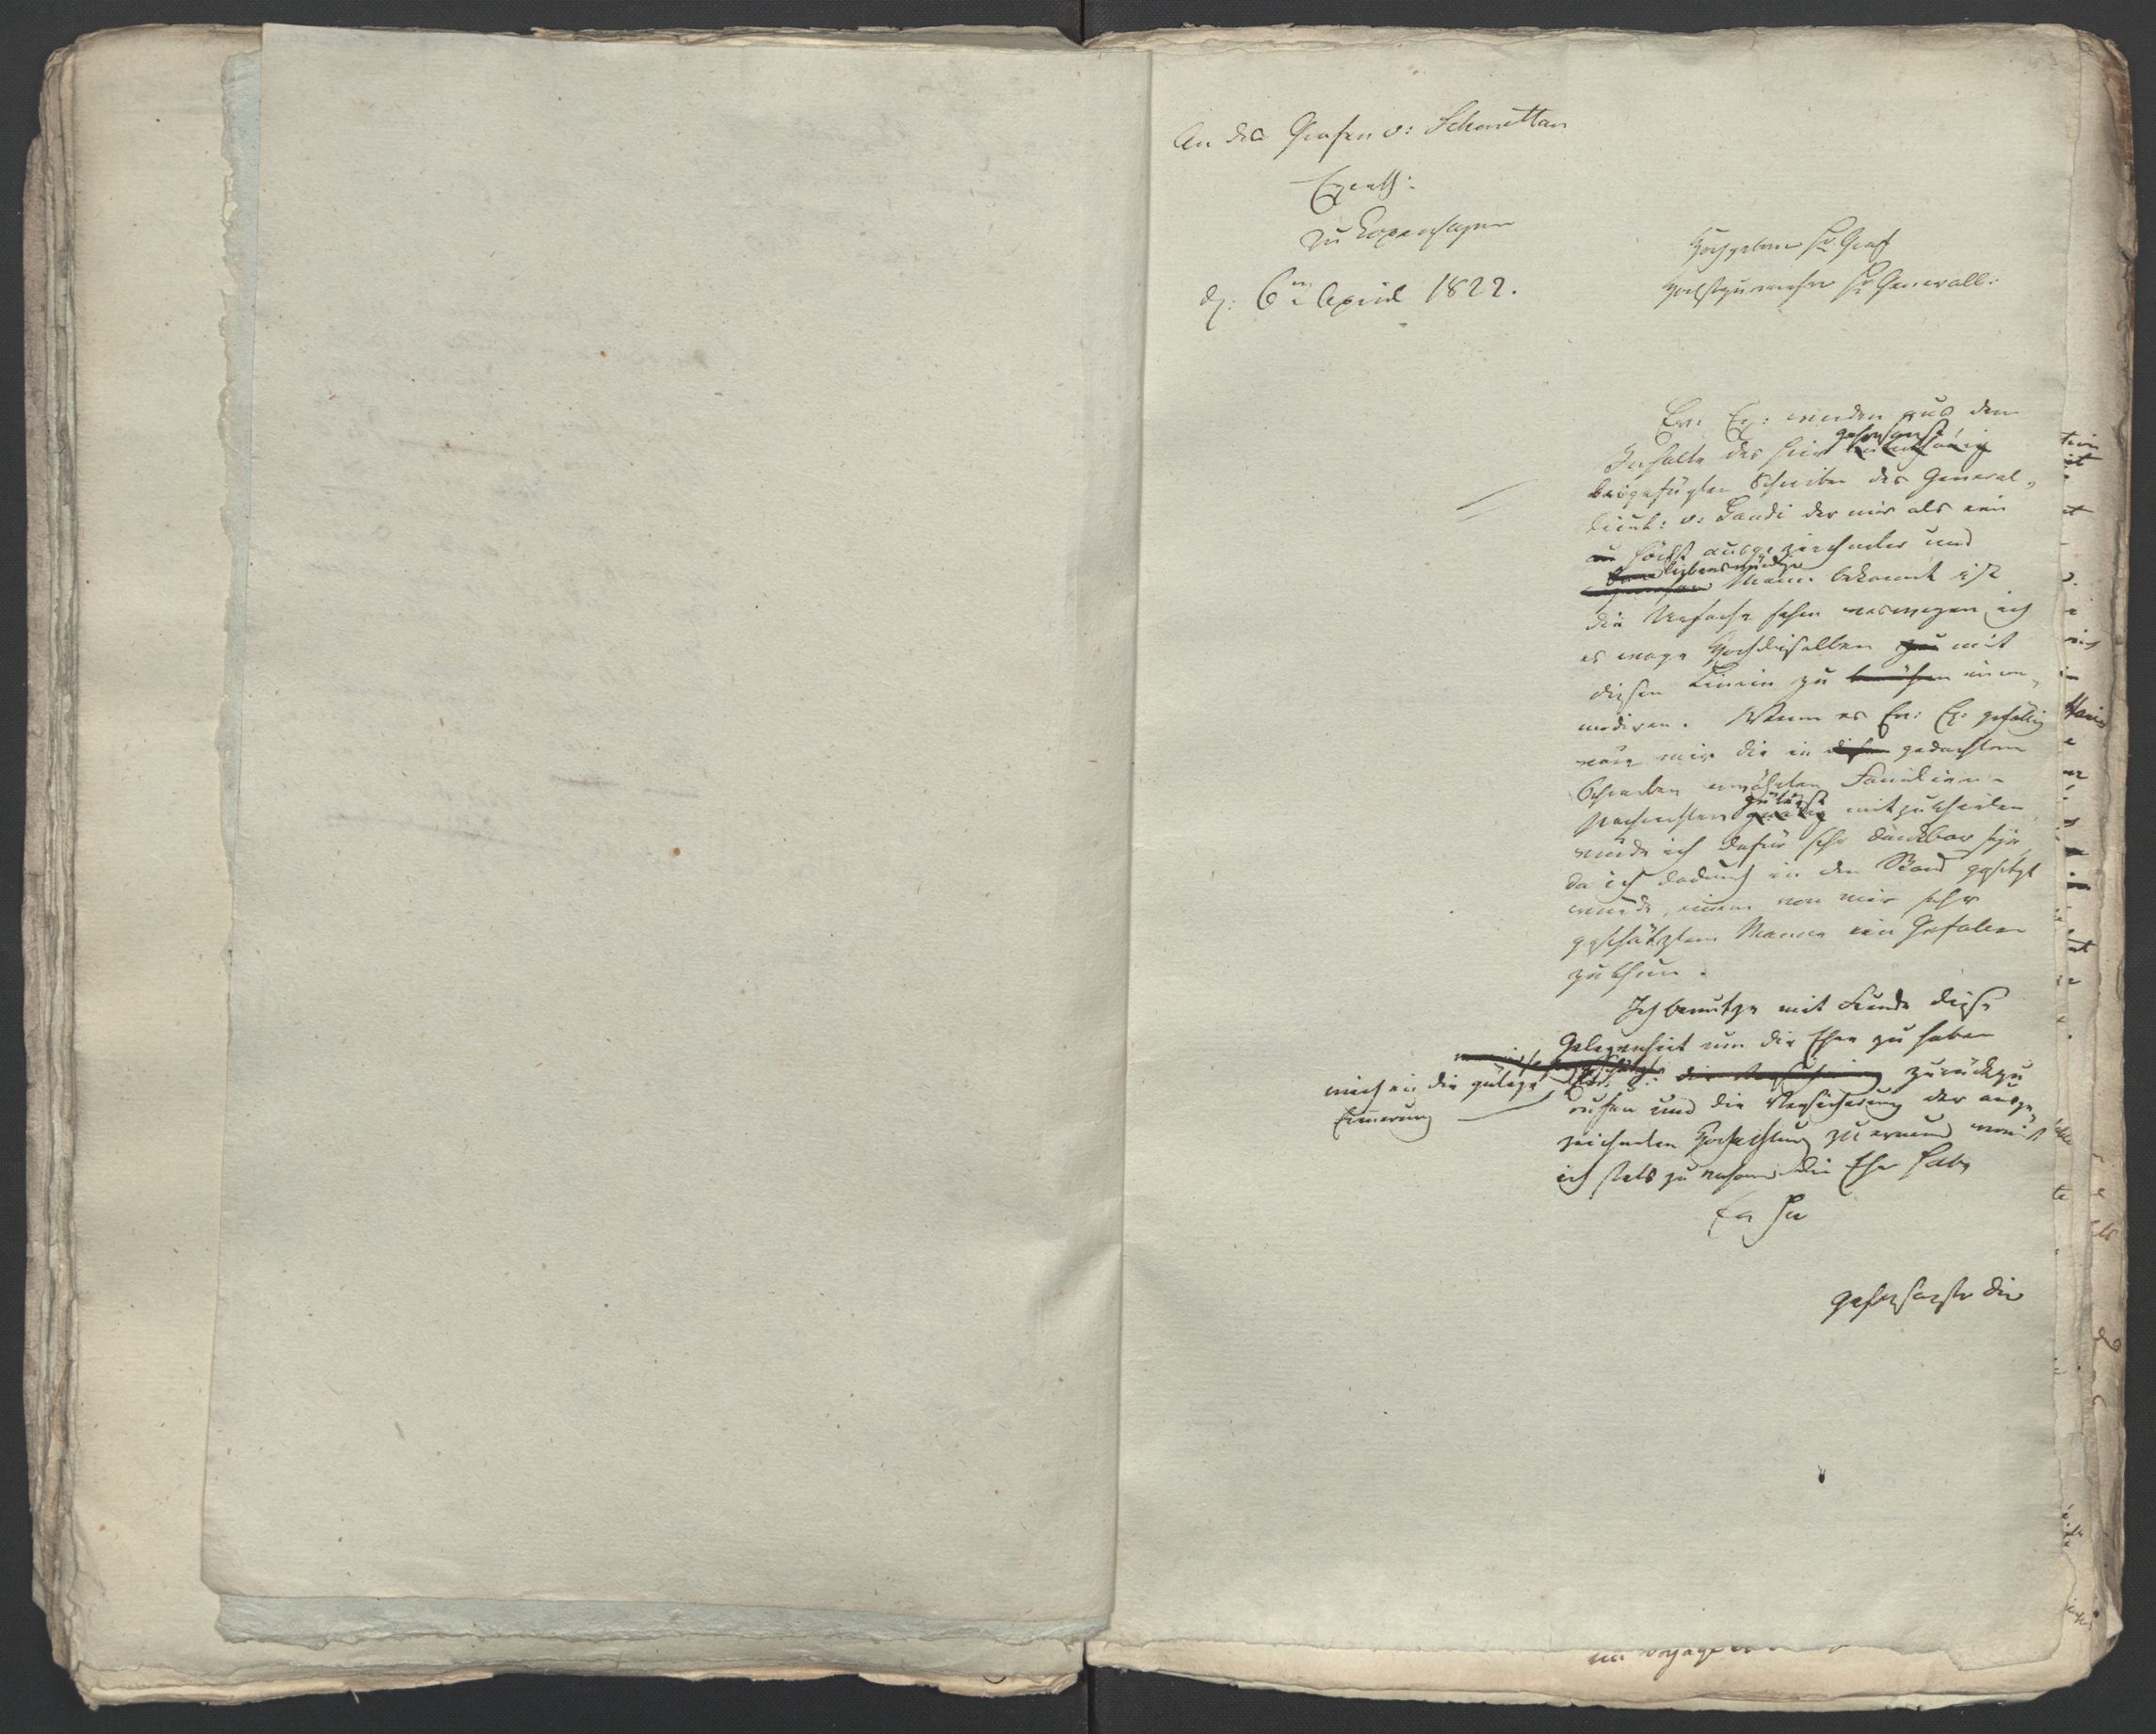 An des Grafen v: Schmettau
Excell:
zu Copenhagen
d: 6n April 1822.
Hochgeborner Hr Graf
Hochstzuverehrer Hr Generall:
Ew: Ex: werden aus dem
Inhalte des hier gehorsamst
beigefügten Schreiben des General-
Lieut: v: Gaudi der mir als ein
höchst ausgezeichneter und
liebenswürdiger Mann bekannt ist
die Ursache sehen weswegen ich
es wage Hochdieselben mit
diesen Linien zu incom-
modiren. Wenn es Ew: Ex: gefällig
wäre mir die in gedachtem
Schreiben erwähnten Familien-
Nachrichten gütigst mitzutheilen
würde ich dafür sehr dankbar seyn,
da ich dadurch in den Stand gesetzt
würde, einem von mir sehr
geschätzten Manne ein Gefallen
zu thun.
Ich benutze mit Freude diese
Gelegenheit um die Ehre zu haben
mich in die gütige
Erinnerung
zurückzu
rufen und die Versicherung der ausge-
zeichneten Hochachtung zu erneuern womit
ich stets zu verharren die Ehre habe
Ew Hr
gehorsamster Die